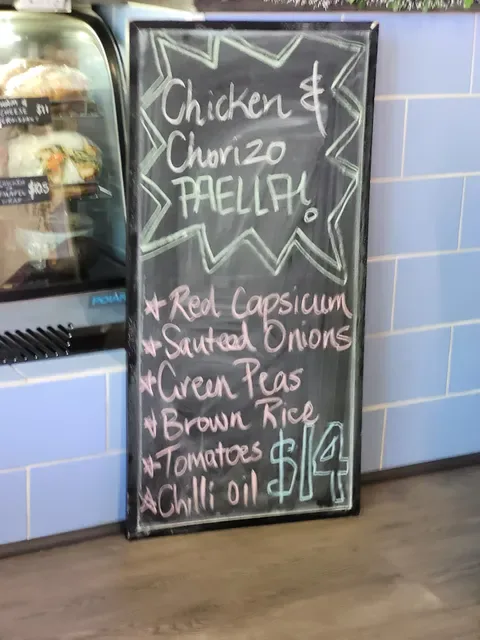 Chicken &
Chorizo
PAELLA!
Red Capsicum
Sauteed Onions
Green Peas
Brown Rice
Tomatoes
Chilli Oil
$14
CHEESE
$11
CHICKEN &
WRAP
$10.5